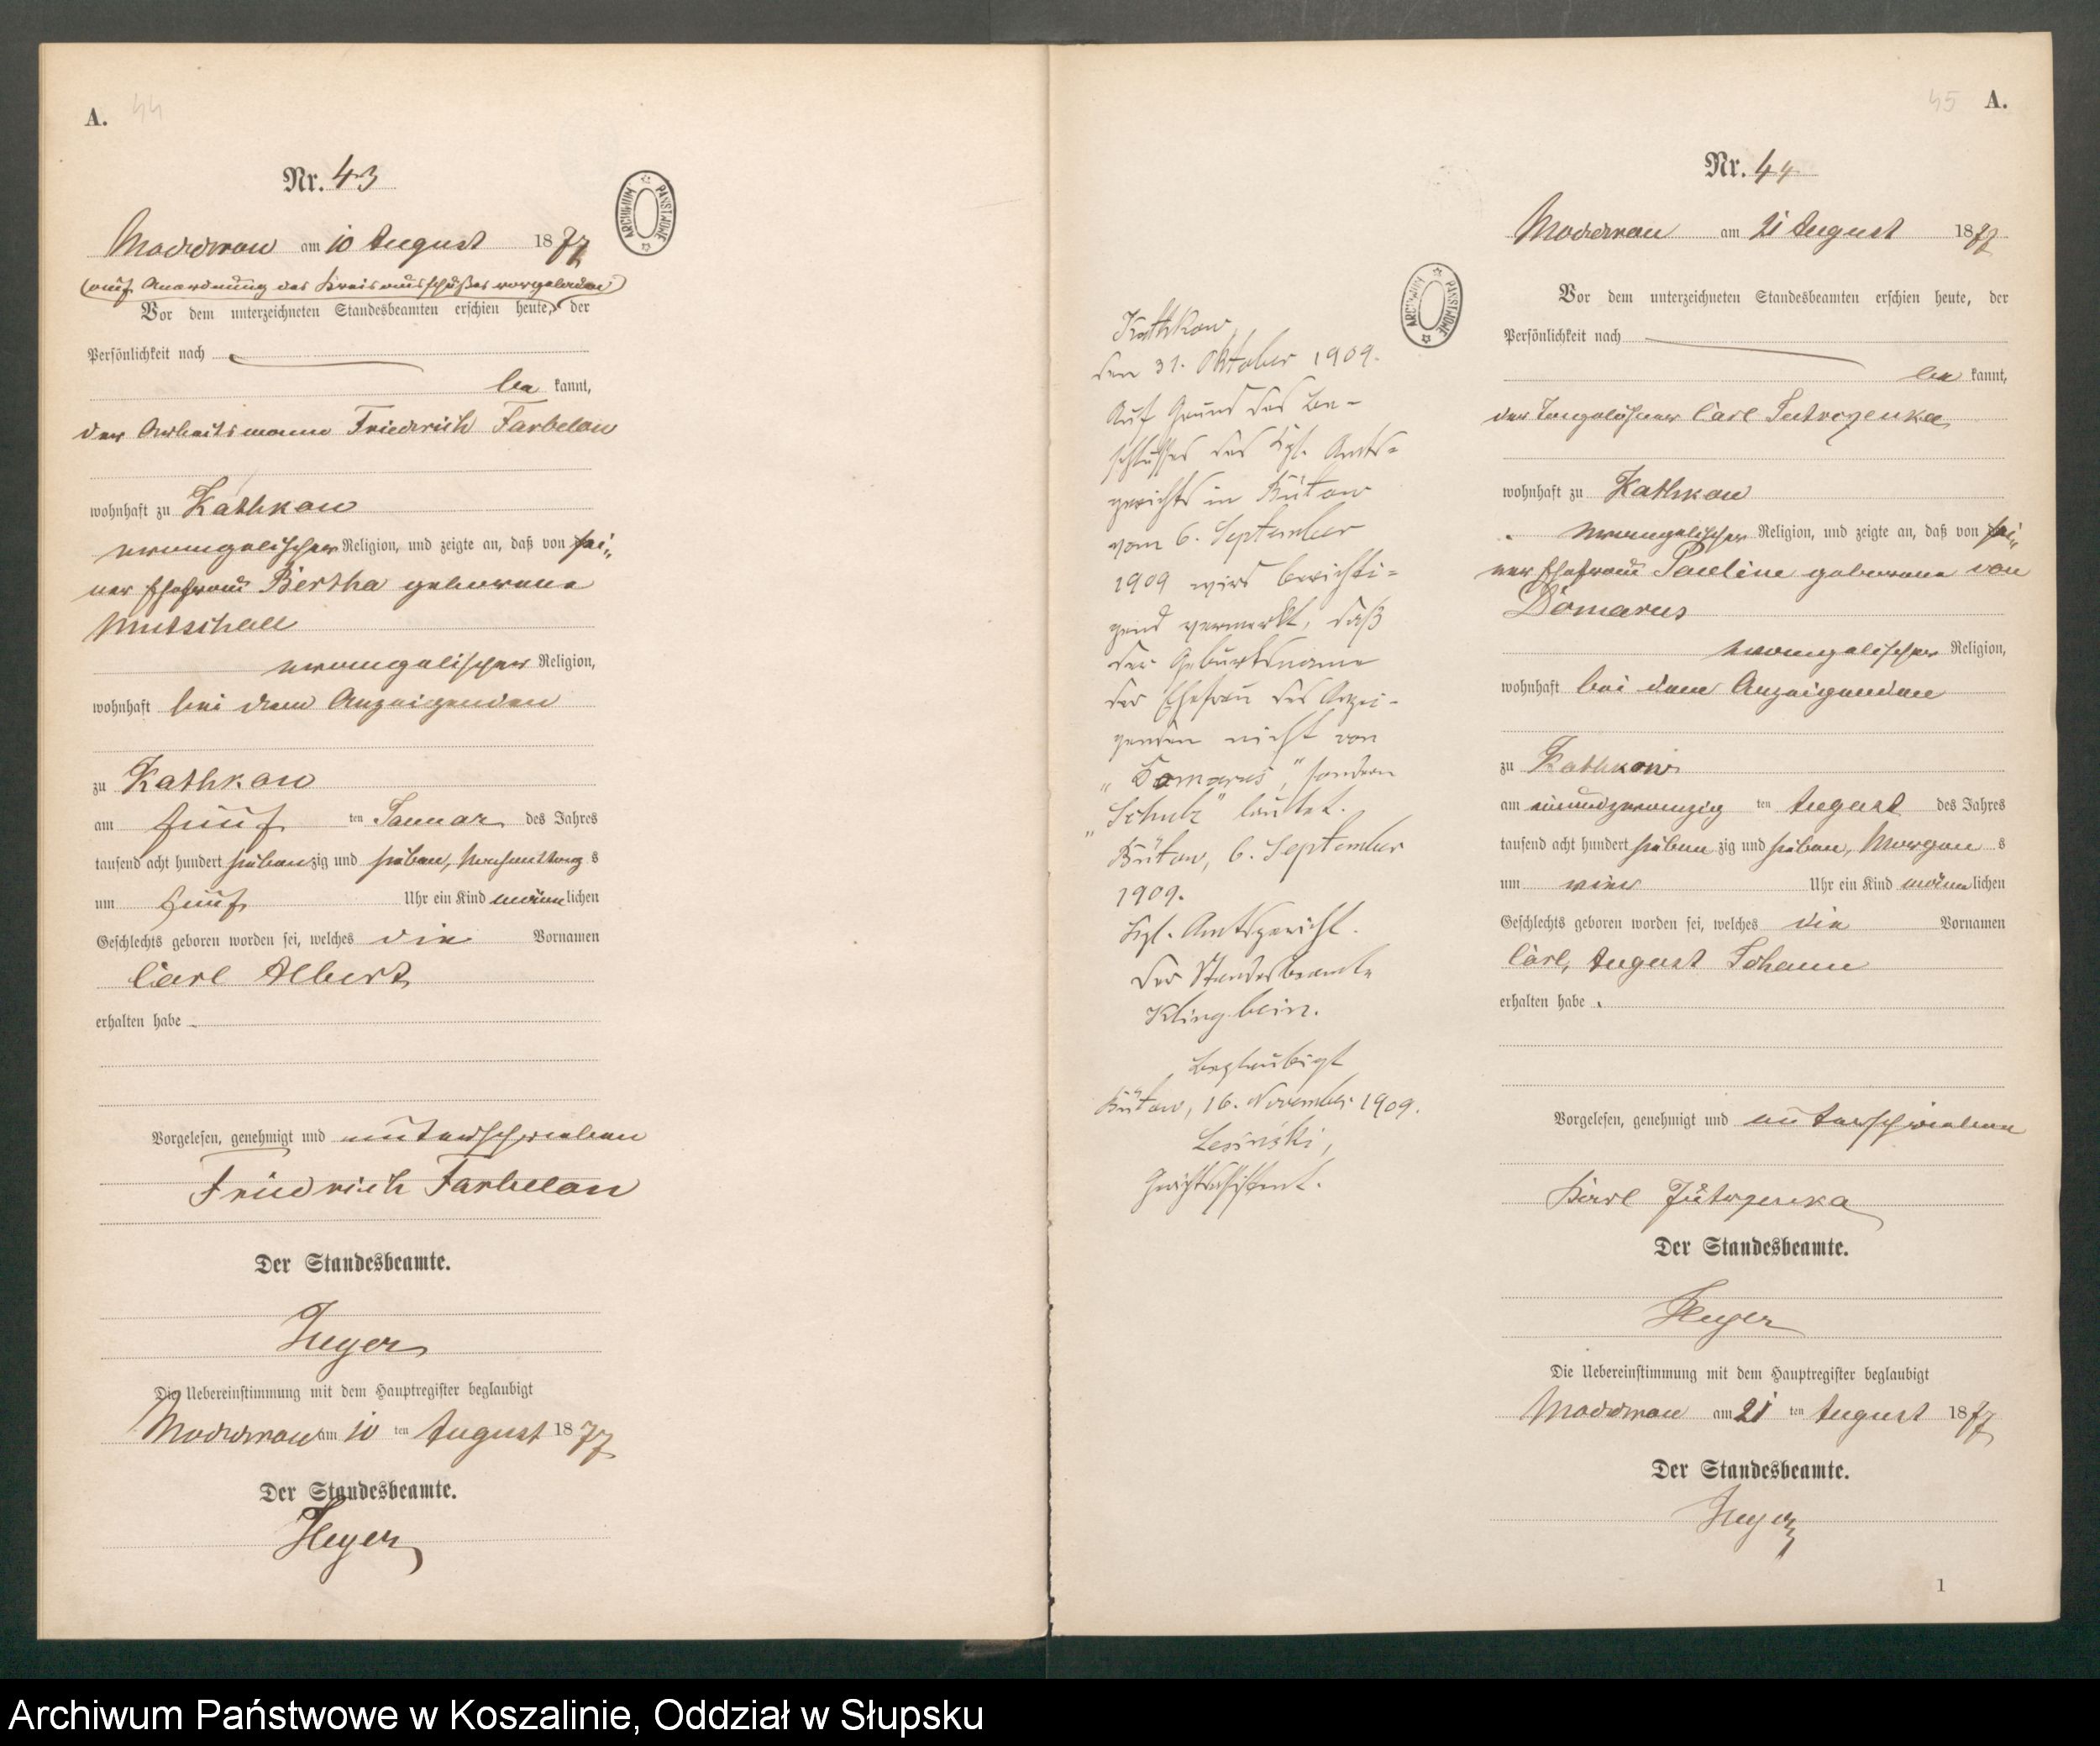 A. 44
Nr. 43
Moddrow am 10 August 1877
(auf Anordnung des Kreisausschußes vorgeladen)
Vor dem unterzeichneten Standesbeamten erschien heute, der
Persönlichkeit nach
be kannt,
der Arbeitsmann Friedrich Farbelow
wohnhaft zu Kathkow
evangelischer Religion, und zeigte an, daß von sei„
ner Ehefrau Bertha geborene
Mutschall
evangelischer Religion,
wohnhaft bei dem Anzeigenden
zu Kathkow
am fünf ten Januar des Jahres
tausend acht hundert siebenzig und sieben, Nachmittag s
um fünf Uhr ein Kind männlichen
Geschlechts geboren worden sei, welches die Vornamen
Carl Albert
erhalten habe .
Vorgelesen, genehmigt und unterschrieben
Friedrich Farbelow
Der Standesbeamte.
Heyer
Die Uebereinstimmung mit dem Hauptregister beglaubigt
Moddrow am 10 ten August 1877
Der Standesbeamte.
Heyer
ARCHIWUM PAŃSTWOWE
Kathkow,
den 31. Oktober 1909.
Auf Grund des Be-
schlusses des Kgl. Amts-
gerichts in Bütow
vom 6. September
1909 wird berichti-
gend vermerkt, daß
der Geburtsname
der Ehefrau des Anzei-
genden nicht von
„Domarus", sondern
„Schulz" lautet.
Bütow, 6. September
1909.
Kgl. Amtsgericht.
Der Standesbeamte
Klingbein.
Beglaubigt
Bütow, 16. November 1909.
Lesinski,
Gerichtsassistent.
ARCHIWUM PAŃSTWOWE
45 A.
Nr. 44
Moddrow am 21 August 1877
Vor dem unterzeichneten Standesbeamten erschien heute, der
Persönlichkeit nach
be kannt,
der Tagelöhner Carl Jutrzenka
wohnhaft zu Kathkow
evangelischer Religion, und zeigte an, daß von sei„
ner Ehefrau Pauline geborene von
Domarus
evangelischer Religion,
wohnhaft bei dem Anzeigenden
zu Kathkow
am einundzwanzig ten August des Jahres
tausend acht hundert sieben zig und sieben, Morgen s
um vier Uhr ein Kind männlichen
Geschlechts geboren worden sei, welches die Vornamen
Carl, August Johann
erhalten habe .
Vorgelesen, genehmigt und unterschrieben
Karl Jutrzenka
Der Standesbeamte.
Heyer
Die Uebereinstimmung mit dem Hauptregister beglaubigt
Moddrow am 21 ten August 1877
Der Standesbeamte.
Heyer
1
Archiwum Państwowe w Koszalinie, Oddział w Słupsku